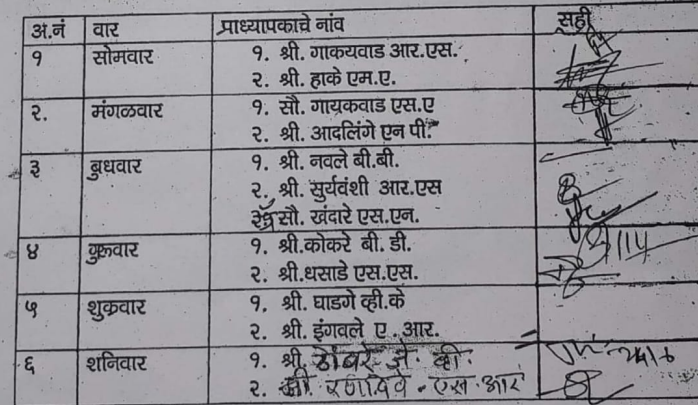 अ.नं वार प्राध्यापकाचे नांव सही
१ सोमवार १. श्री. गाकयवाड आर.एस.
२. श्री. हाके एम.ए.
२. मंगळवार १. सौ. गायकवाड एस.ए
२. श्री. आदलिंगे एन पी.
३ बुधवार १. श्री. नवले बी.बी.
२. श्री. सुर्यवंशी आर.एस
३ सौ. खंदारे एस.एन.
४ गुरूवार १. श्री.कोकरे बी. डी.
२. श्री.धसाडे एस.एस.
५ शुक्रवार १. श्री. घाडगे व्ही.के
२. श्री. इंगवले ए . आर.
६ शनिवार १. श्री. ठोंबरे जे. व्ही.
२. श्री. रणदिवे - एस.आर